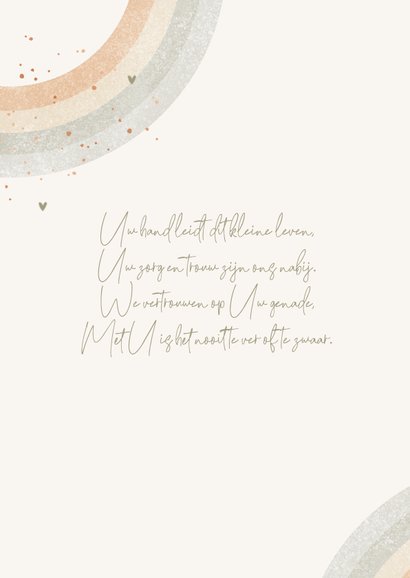 Uw hand leidt dit kleine leven,
Uw zorg en trouw zijn ons nabij.
We vertrouwen op Uw genade,
Met U is het nooit te ver of te zwaar.